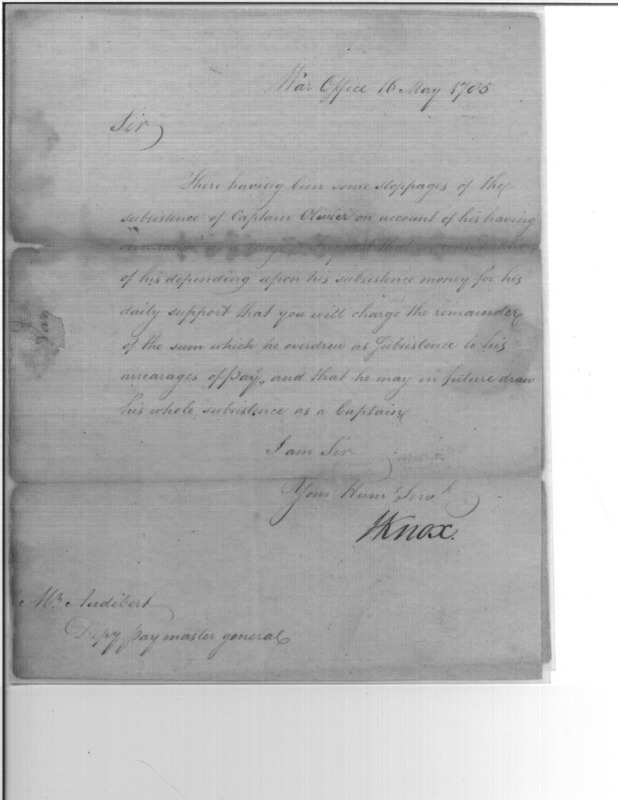 War Office 16 May 1785
Sir
There having been some stoppages of the
subsistence of Captain Olivier on account of his having
as a Major I request that in consideration
of his depending upon his subsistence money for his
daily support that you will charge the remainder
of the sum which he overdrew as Subsistence to his
arrearages of pay, and that he may in future draw
his whole subsistence as a Captain
I am Sir
Your Humᵉ Servᵗ
HKnox.
Mr Audibert
Depy paymaster general